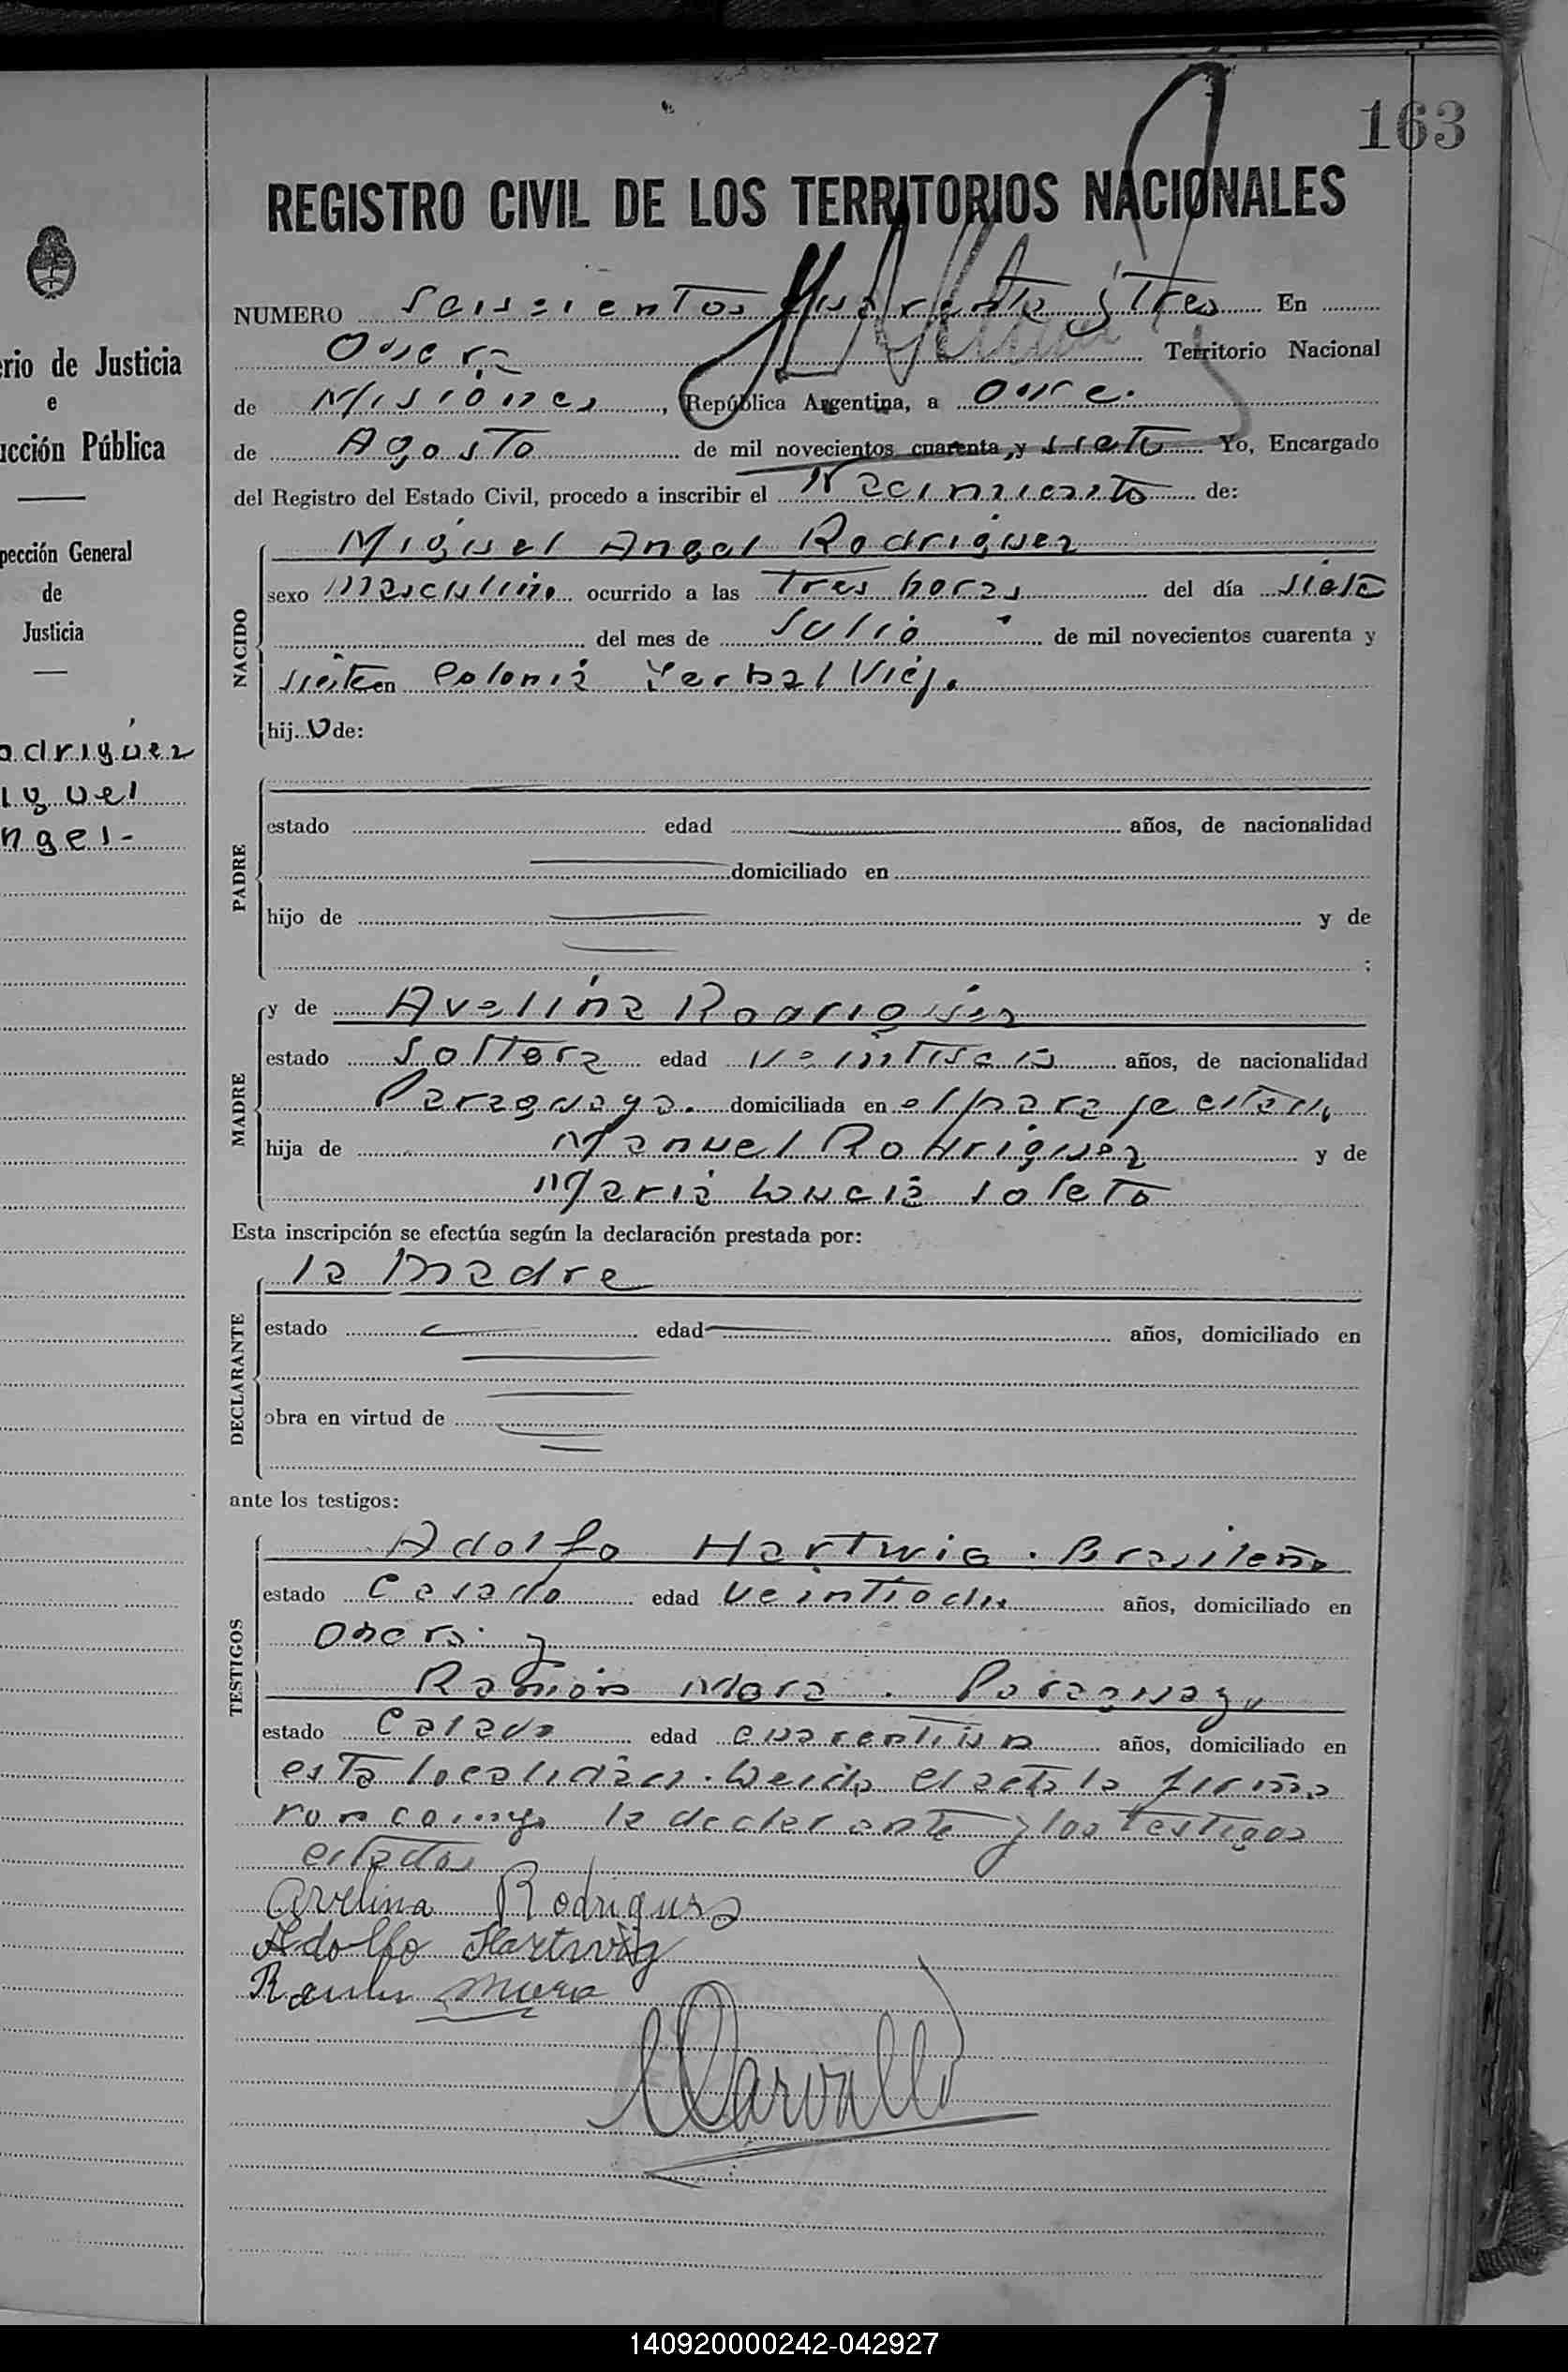 163
REGISTRO CIVIL DE LOS TERRITORIOS NACIONALES
erio de Justicia
e
ucción Pública
pección General
de
Justicia
odriguez
iguel
ngel-
NUMERO Seiscientos cuarenta y Tres En
Overa Territorio Nacional
de Misiones, República Argentina, a once.
de Agosto de mil novecientos cuarenta y siete Yo, Encargado
del Registro del Estado Civil, procedo a inscribir el Nacimiento de:
NACIDO
Miguel Angel Rodriguez
sexo masculino ocurrido a las Tres horas del día siete
del mes de Julio de mil novecientos cuarenta y
siete en Colonia Yerbal Viejo
hijo de:
PADRE
estado edad años, de nacionalidad
domiciliado en
hijo de y de
;
MADRE
y de Avelina Rodriguez
estado soltera edad veintiseis años, de nacionalidad
Paraguaya. domiciliada en el paraje citado
hija de Manuel Rodriguez y de
Maria Lucia Soleto
Esta inscripción se efectúa según la declaración prestada por:
DECLARANTE
la Madre
estado edad años, domiciliado en
obra en virtud de
ante los testigos:
TESTIGOS
Adolfo Hartwig. Brasileño
estado Casado edad veintiocho años, domiciliado en
Overa y
Ramón Mora. Paraguayo
estado Casado edad cuarentiun años, domiciliado en
esta localidad. Leida el acta la firma
ron conmigo la declarante y los Testigos
citados
Avelina Rodriguez
Adolfo Hartwig
Ramon Mora
140920000242-042927